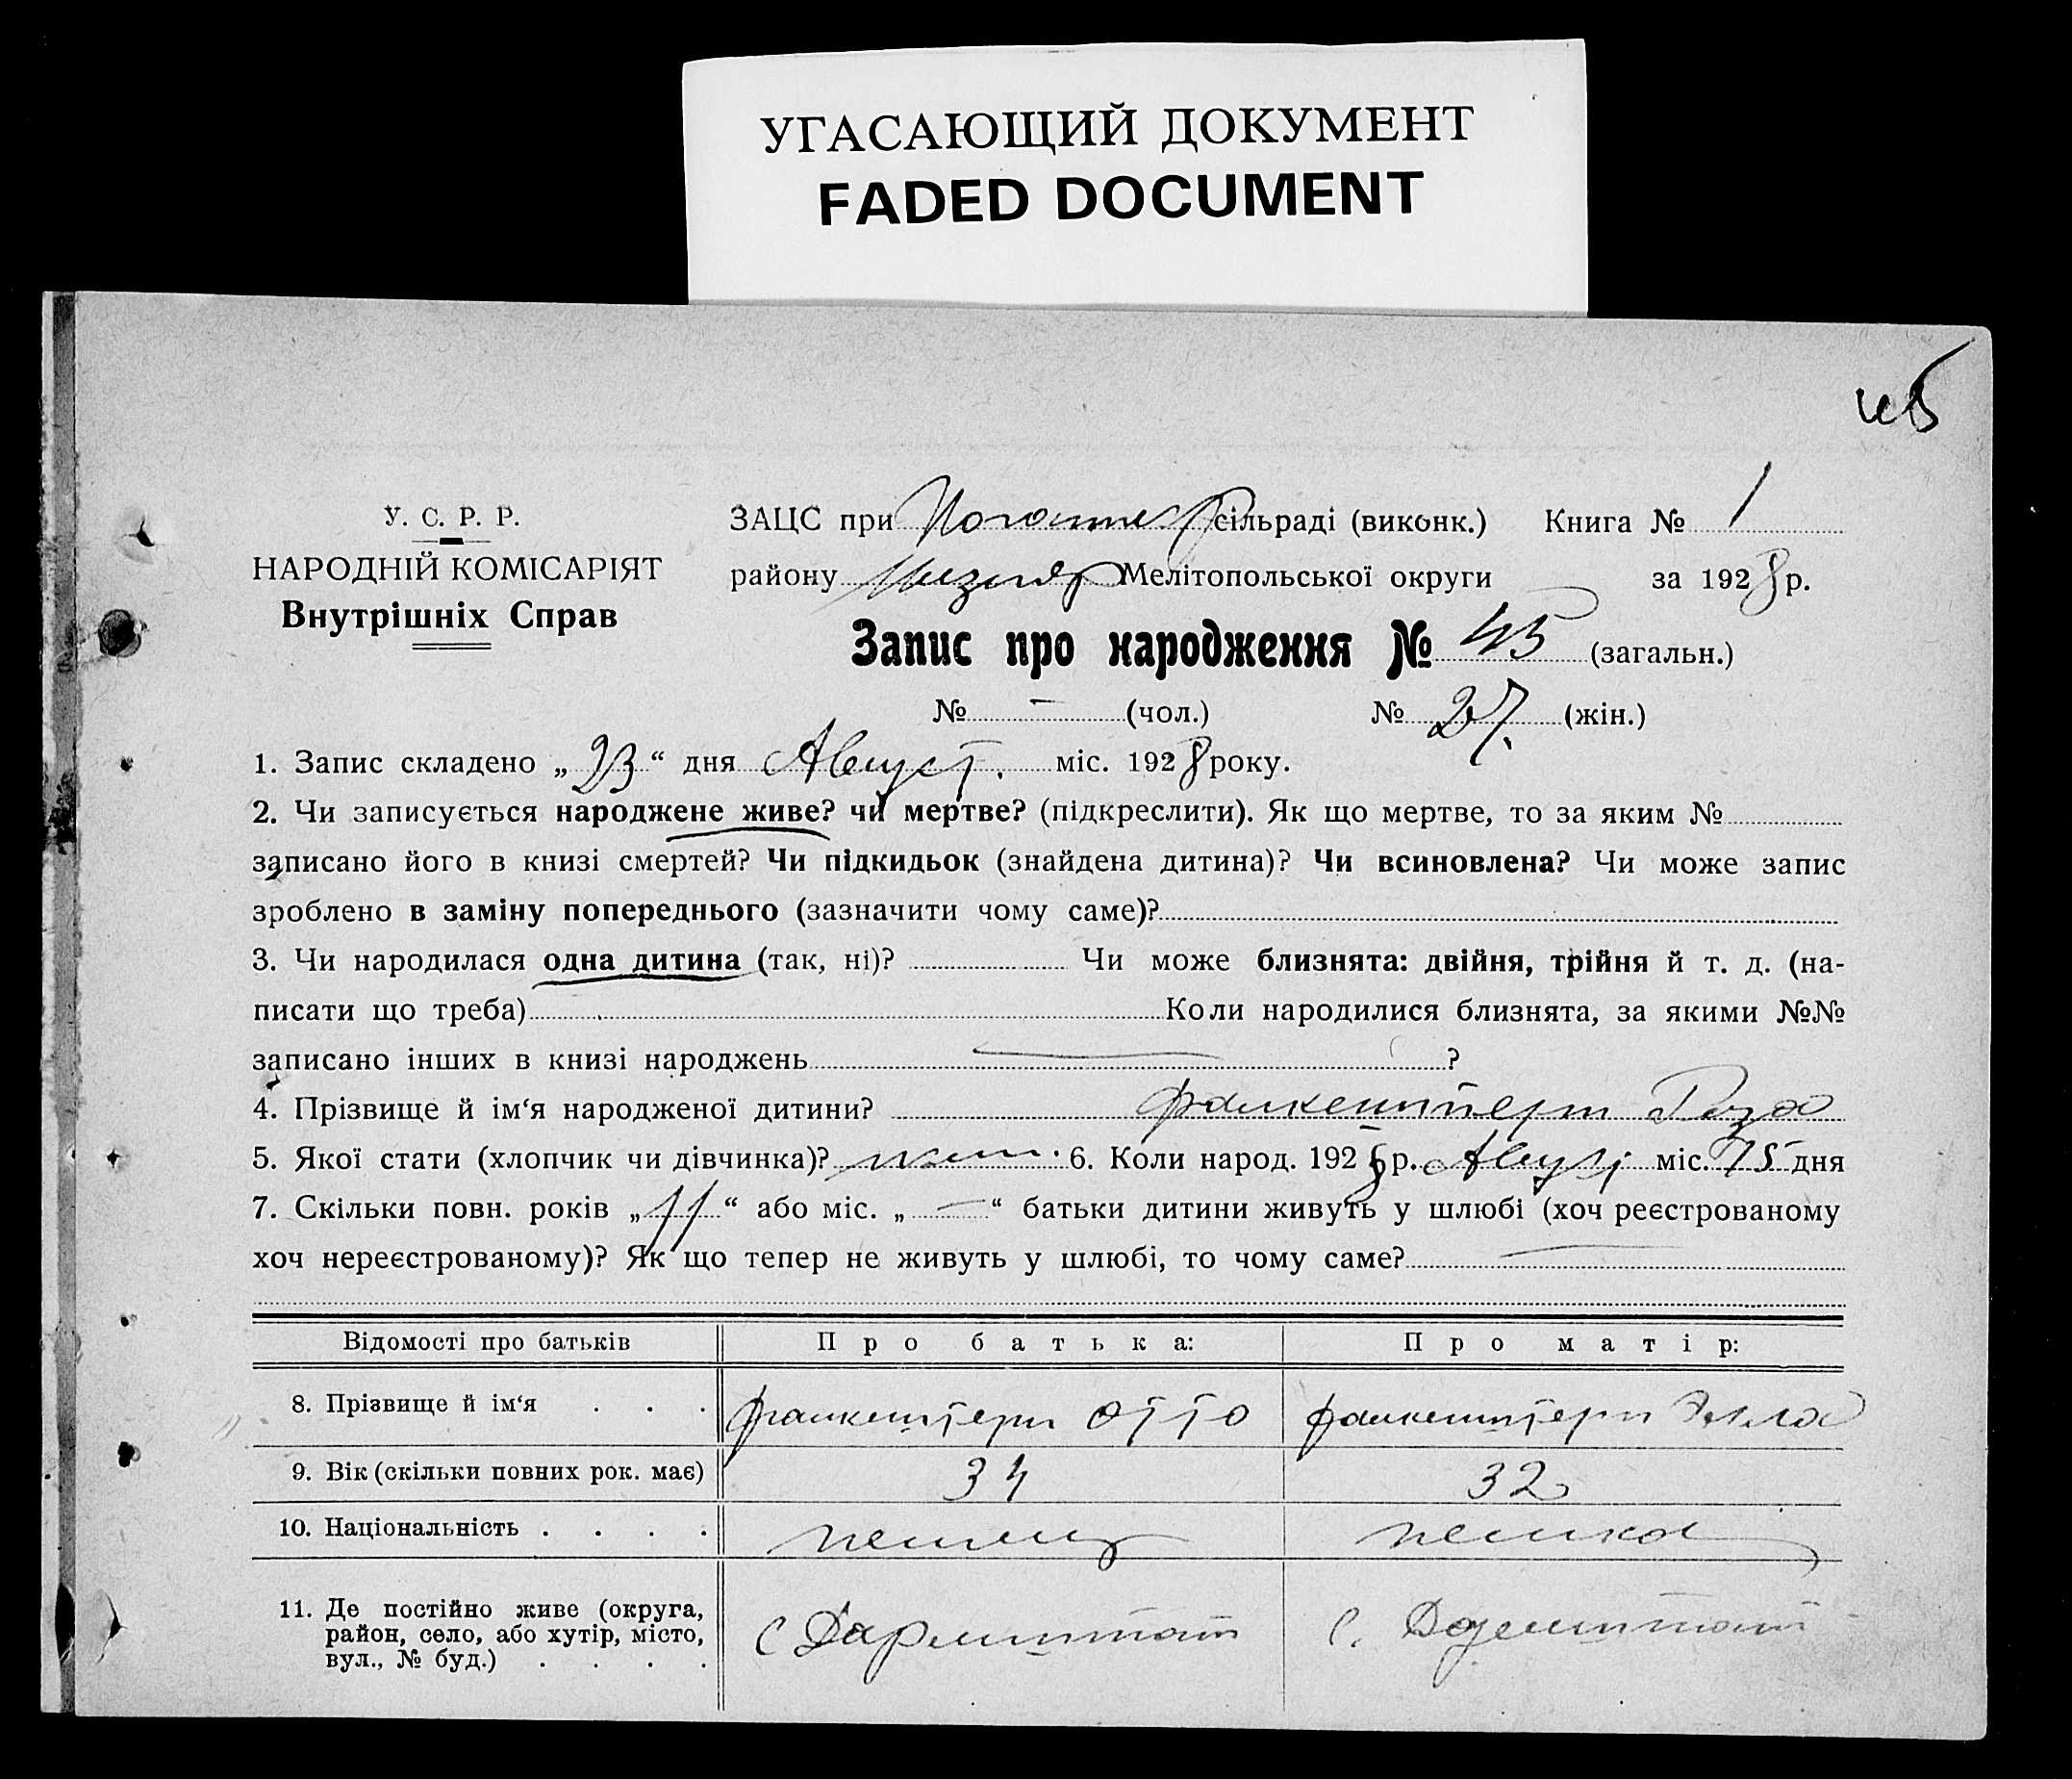 УГАСАЮЩИЙ ДОКУМЕНТ
FADED DOCUMENT
45
У. С. Р. Р.
НАРОДНІЙ КОМІСАРІЯТ
Внутрішніх Справ
ЗАЦС при сільраді (виконк.) Книга № 1
району Мелітопольської округи за 1928 р.
Запис про народження № 45 (загальн.)
№ — (чол.) № 27. (жін.)
1. Запис складено „23“ дня Август. міс. 1928 року.
2. Чи записується народжене живе? чи мертве? (підкреслити). Як що мертве, то за яким №
записано його в книзі смертей? Чи підкидьок (знайдена дитина)? Чи всиновлена? Чи може запис
зроблено в заміну попереднього (зазначити чому саме)?
3. Чи народилася одна дитина (так, ні)? Чи може близнята: двійня, трійня й т. д. (на-
писати що треба) Коли народилися близнята, за якими №№
записано інших в книзі народжень — ?
4. Прізвище й ім‘я народженої дитини? Фалкештерн Роза
5. Якої стати (хлопчик чи дівчинка)? жен. 6. Коли народ. 1928 р. Август міс. 15 дня
7. Скільки повн. років „11“ або міс. „—“ батьки дитини живуть у шлюбі (хоч реєстрованому
хоч нереєстрованому)? Як що тепер не живуть у шлюбі, то чому саме? —
Відомості про батьків Про батька: Про матір:
8. Прізвище й ім‘я . . . Фалкештерн Отто Фалкештерн
9. Вік (скільки повних рок. має) 34 32
10. Національність . . . . немец немка
11. Де постійно живе (округа,
район, село, або хутір, місто,
вул., № буд.) . . . . с Дармштат с. Дармштат